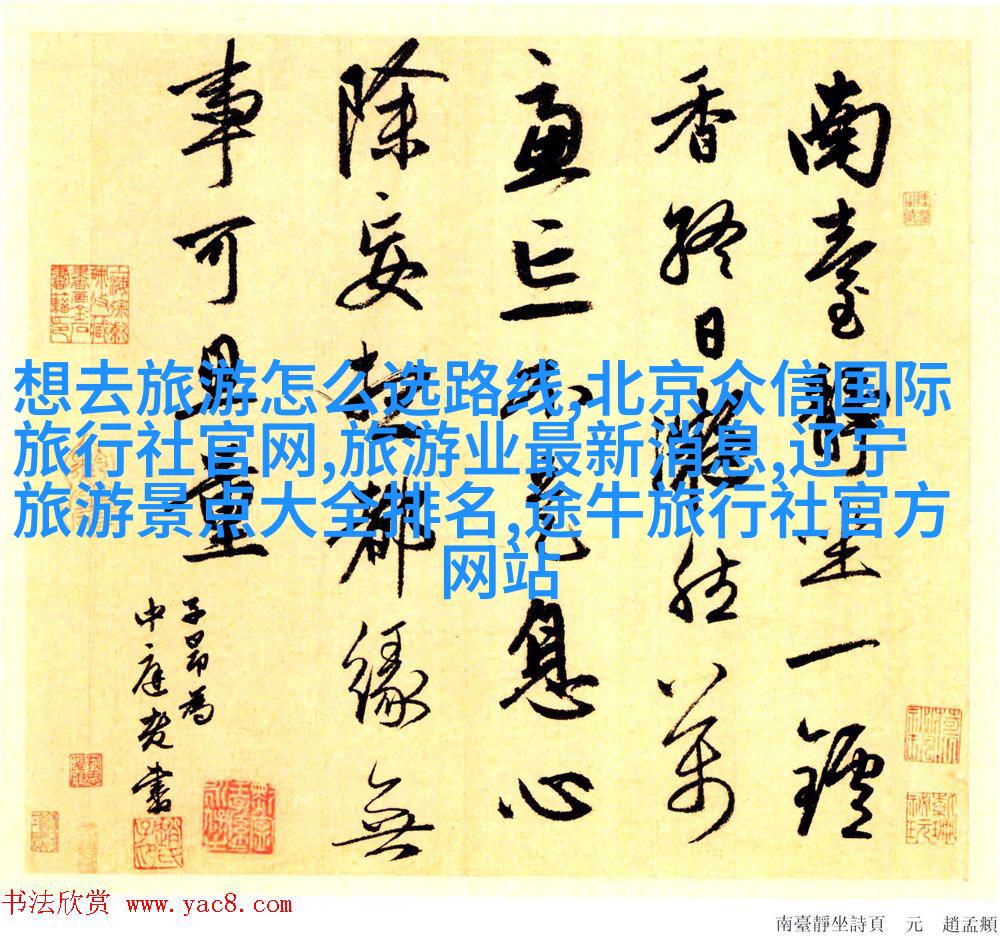 南臺靜坐一鑪
香終日凝然萬
慮亡不是息心
除妄想都緣無
事可思量
子昂為
中庭老書
想去旅游怎么选路线,北京众信国际
旅行社官网,旅游业最新消息,辽宁
旅游景点大全排名,途牛旅行社官方
网站
书法欣赏 www.yac8.com
南臺靜坐詩頁 元 趙孟頫